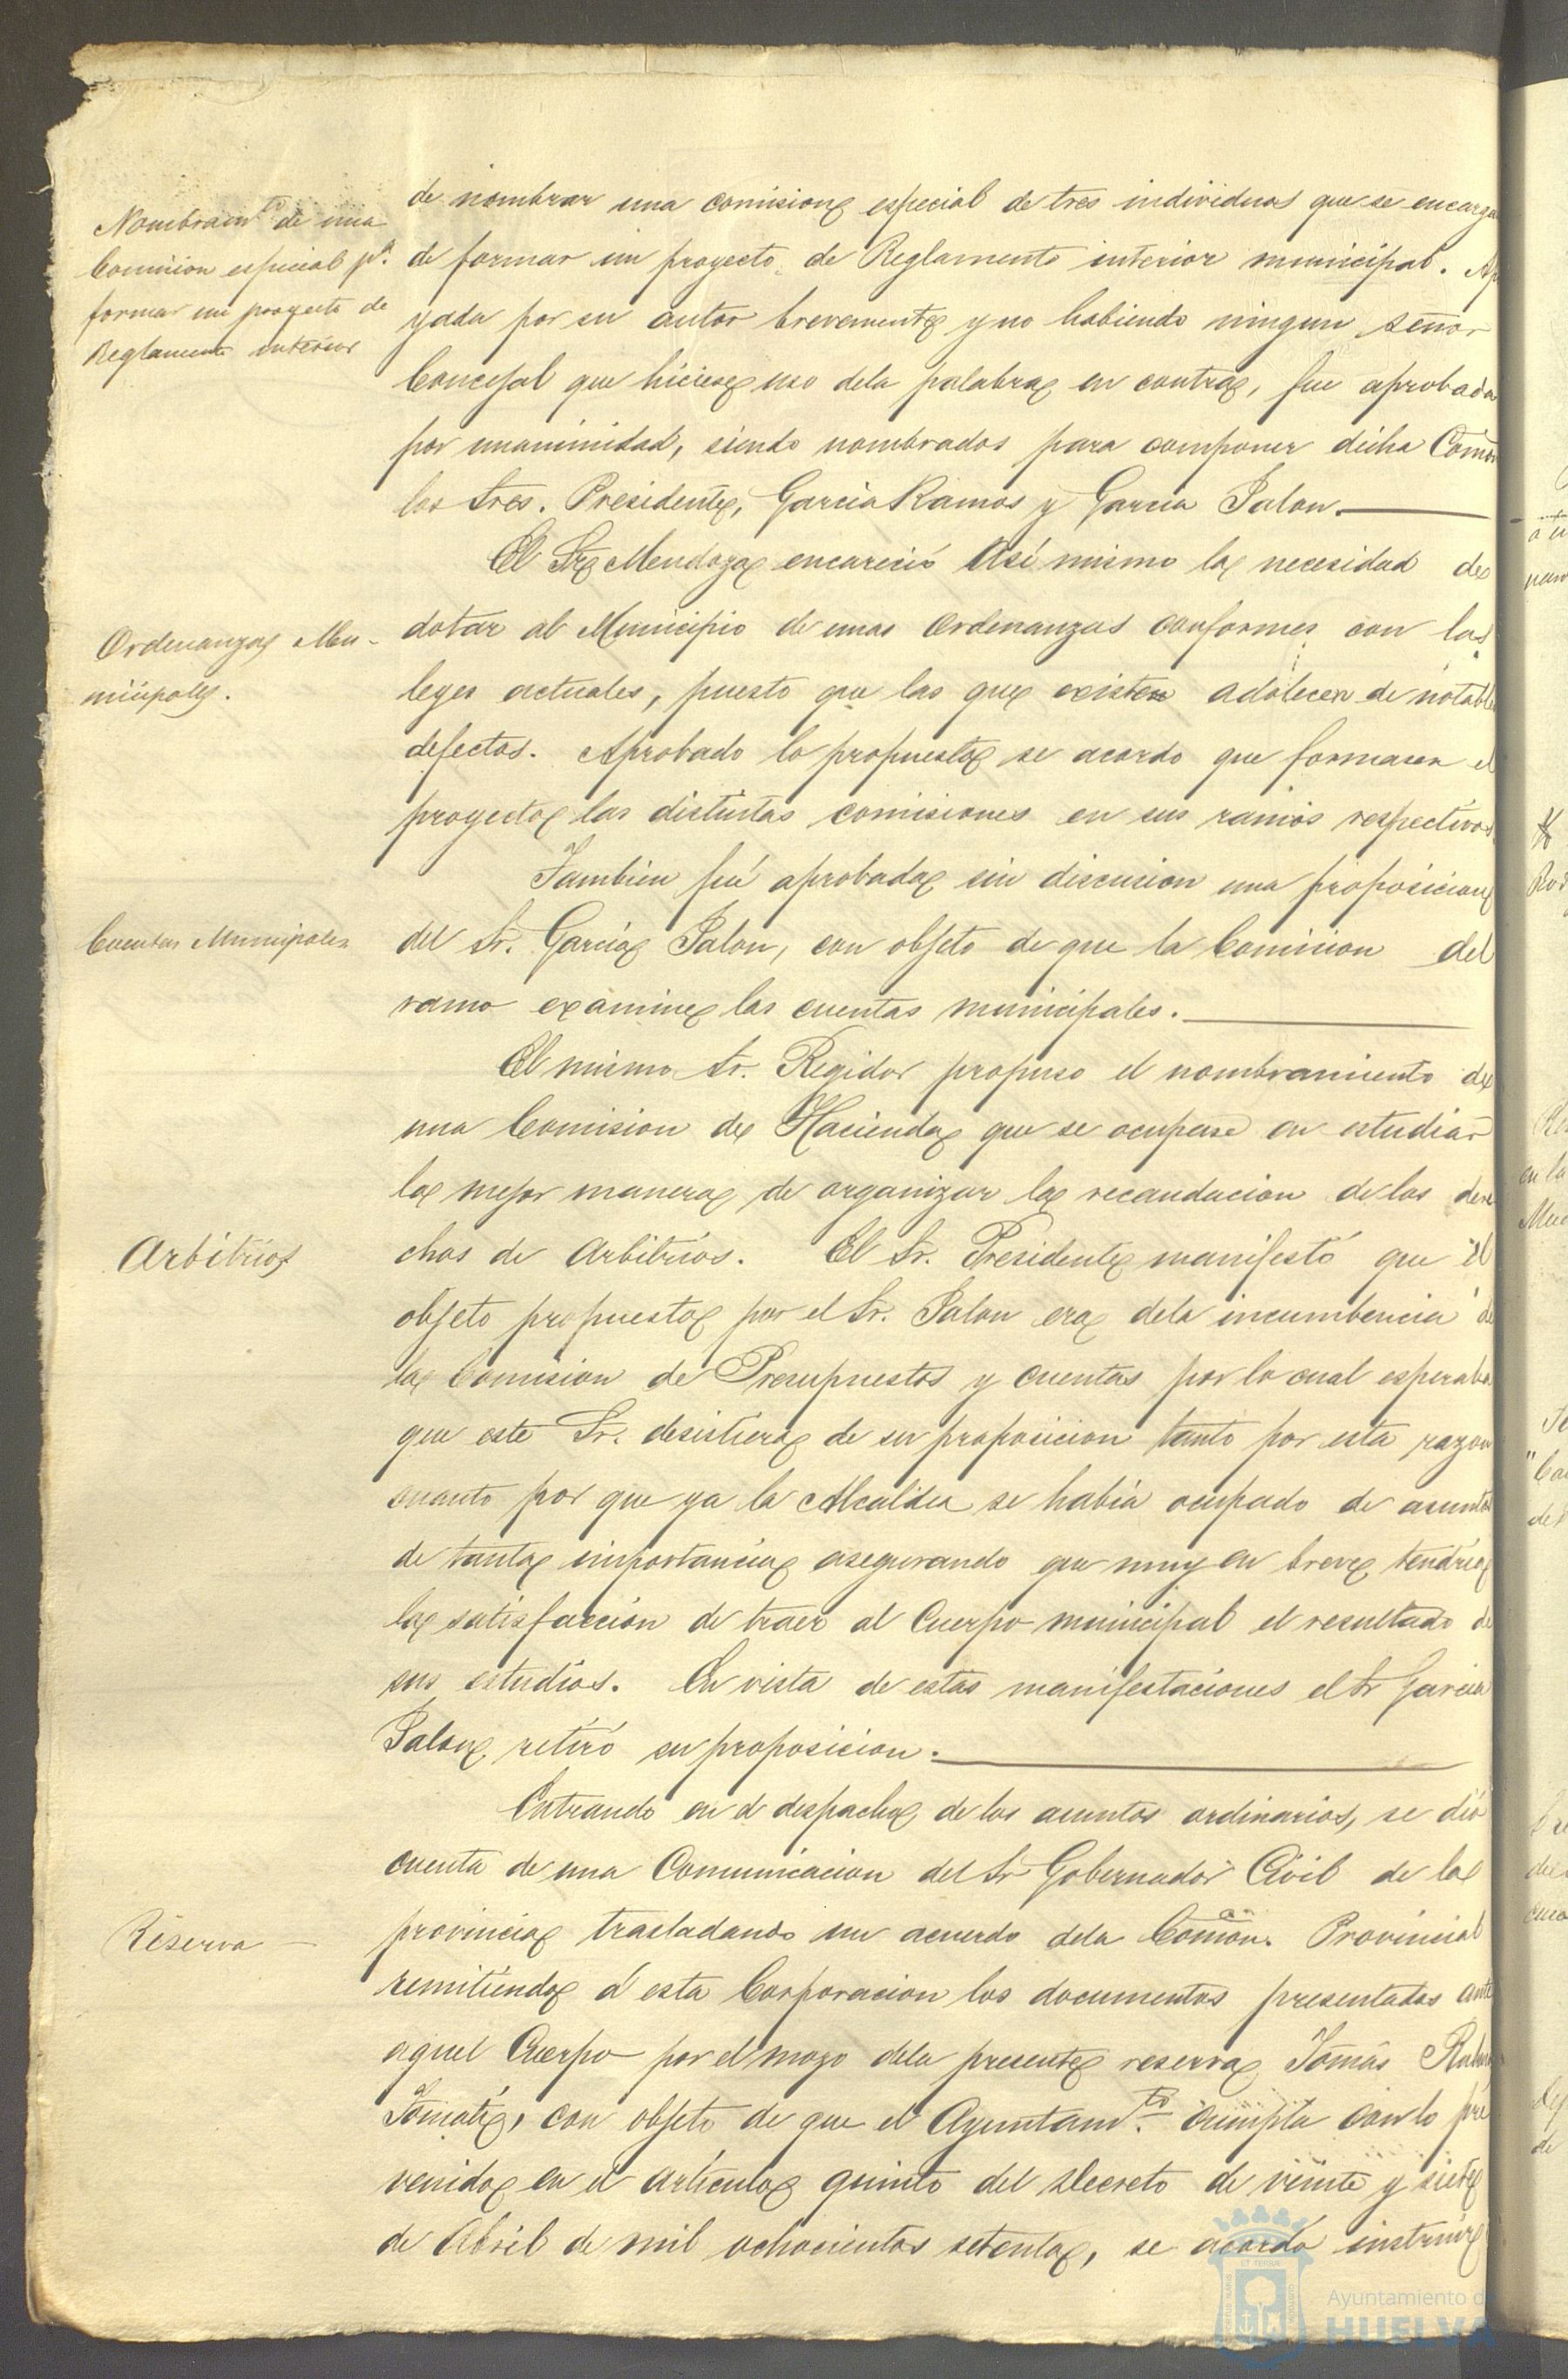 Nombram.to de una
Comision especial p.a
formar un proyecto de
Reglamento interior
de nombrar una comision especial de tres individuos que se encarga
de formar un proyecto de Reglamento interior municipal. Ap
yada por su autor brevemente y no habiendo ningun señor
Concejal que hiciese uso dela palabra en contra, fue aprobada
por unanimidad, siendo nombrados para componer dicha Comon
los Sres. Presidente, Garcia Ramos y Garcia Jalon.
El Sr Mendoza encareció Asi mismo la necesidad de
Ordenanzas Mu-
nicipales.
dotar al Municipio de unas Ordenanzas conformes con las
leyes actuales, puesto que las que existen adolecen de notable
defectos. Aprobado lo propuesto se acordo que formasen el
proyecto las distintas comisiones en sus ramos respectivos
Tambien fué aprobada sin discusion una proposicion
Cuentas Municipales
del Sr. Garcia Jalon, con objeto de que la Comision del
ramo examine las cuentas municipales.
El mismo Sr. Regidor propuso el nombramiento de
una Comision de Hacienda que se ocupase en estudiar
la mejor manera de organizar la recaudacion de los dere
Arbitrios
chos de Arbitrios. El Sr. Presidente manifestó que el
objeto propuesto por el Sr. Jalon era dela incumbencia de
la Comision de Presupuestos y cuentas por lo cual esperaba
que este Sr. desistiera de su proposicion tanto por esta razon
cuanto por que ya la Alcaldia se habia ocupado de asunto
de tanta importancia asegurando que muy en breve tendria
la satisfaccion de traer al Cuerpo municipal el resultado de
sus estudios. En vista de estas manifestaciones el Sr Garcia
Jalon retiró su proposicion.
Entrando en el despacho de los asuntos ordinarios, se dió
cuenta de una Comunicacion del Sr Gobernador Civil de la
Reserva
provincia trasladando un acuerdo dela Comon. Provincial
remitiendo á esta Corporacion los documentos presentados ante
aquel Cuerpo por el mozo dela presente reserva Tomás
Tomate, con objeto de que el Ayuntam.to cumpla con lo pre
venido en el articulo quinto del Decreto de veinte y siete
de Abril de mil ochocientos setenta, se acordó instruir
Ayuntamiento de
HUELVA